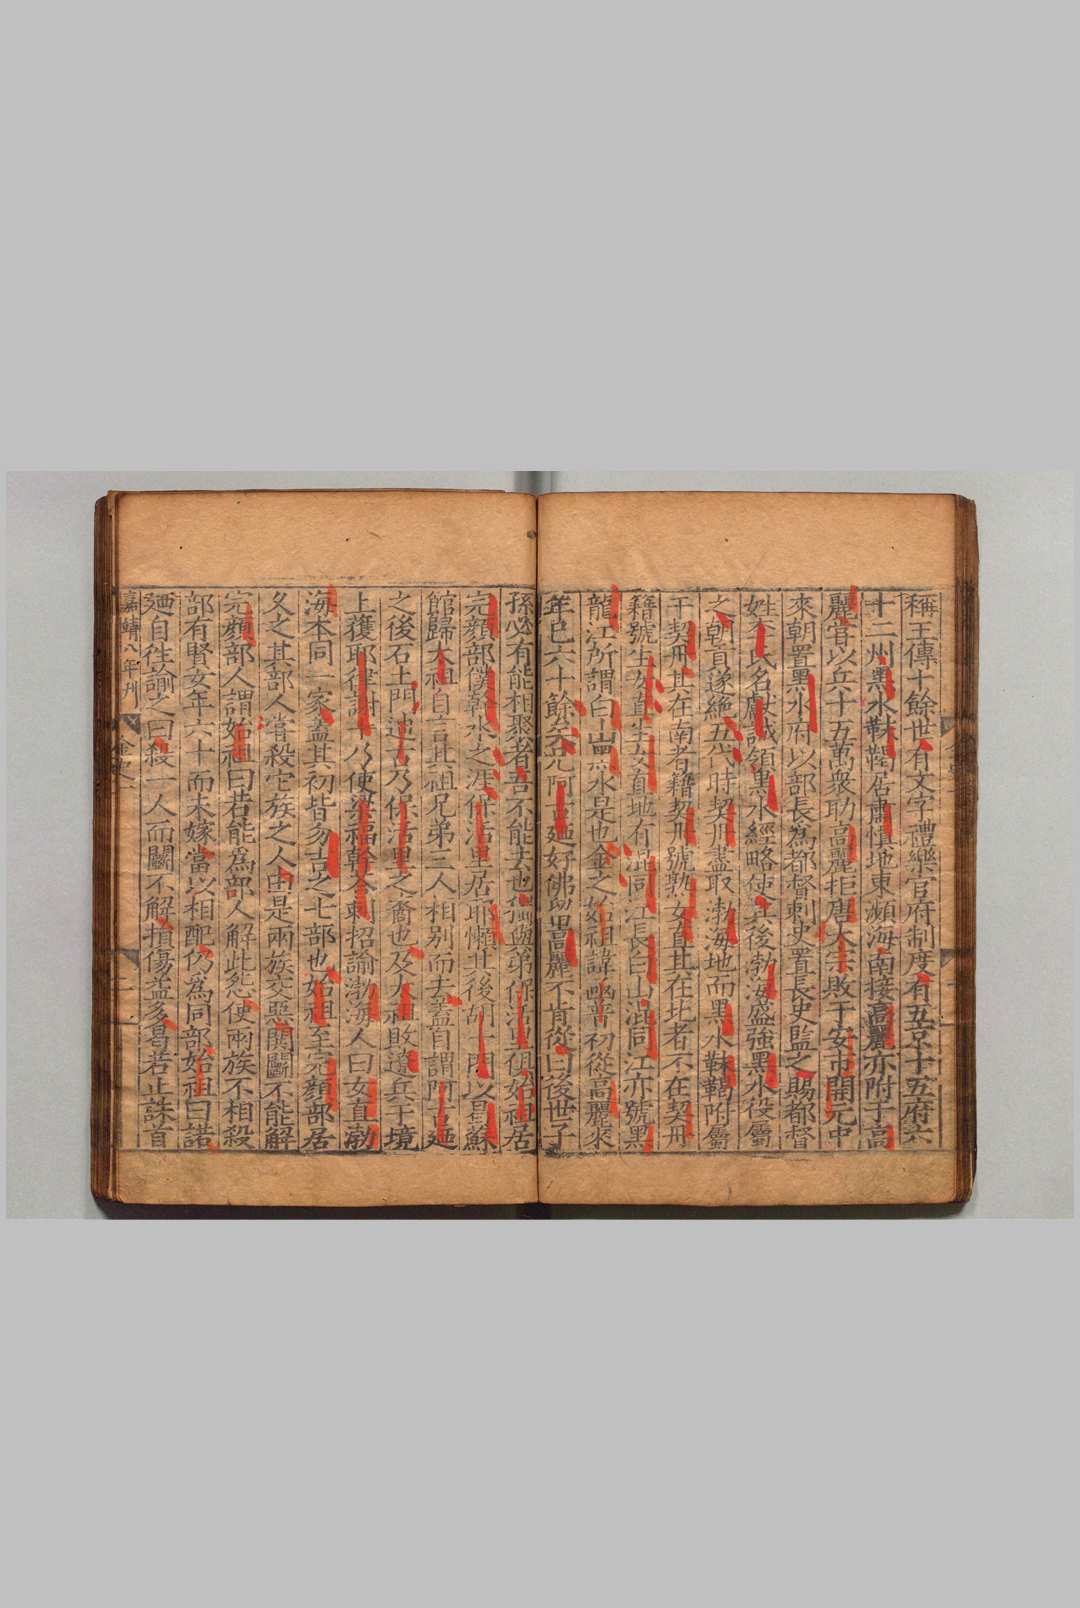 稱王傳十餘世有文字禮樂官府制度有五京十五府六
十二州黑水靺鞨居肅慎地東瀕海南接高麗亦附于高
麗嘗以兵十五萬衆助高麗拒唐太宗敗于安市開元中
來朝置黑水府以部長爲都督刺史置長史監之賜都督
姓李氏名獻誠領黑水經略使其後渤海盛強黑水役屬
之朝貢遂絶五代時契丹盡取渤海地而黑水靺鞨附屬
于契丹其在南者籍契丹號熟女直其在北者不在契丹
籍號生女直生女直地有混同江長白山混同江亦號黑
龍江所謂白山黑水是也金之始祖諱函普初從高麗來
年已六十餘矣兄阿古廼好佛留高麗不肯從曰後世子
孫必有能相聚者吾不能去也獨與弟保活里俱始祖居
完顔部僕幹水之涯保活里居耶懶其後胡十門以曷蘇
館歸太祖自言其祖兄弟三人相别而去蓋自謂阿古廼
之後石土門迪古乃保活里之裔也及太祖敗遼兵于境
上獲耶律謝十乃使梁福斡荅剌招諭渤海人曰女直渤
海本同一家蓋其初皆勿吉之七部也始祖至完顔部居
久之其部人嘗殺它族之人由是兩族交惡鬨鬬不能解
完顔部人謂始祖曰若能爲部人解此怨使兩族不相殺
部有賢女年六十而未嫁當以相配仍爲同部始祖曰諾
廼自往諭之曰殺一人而鬬不解損傷益多曷若止誅首
嘉靖八年刊
金史一